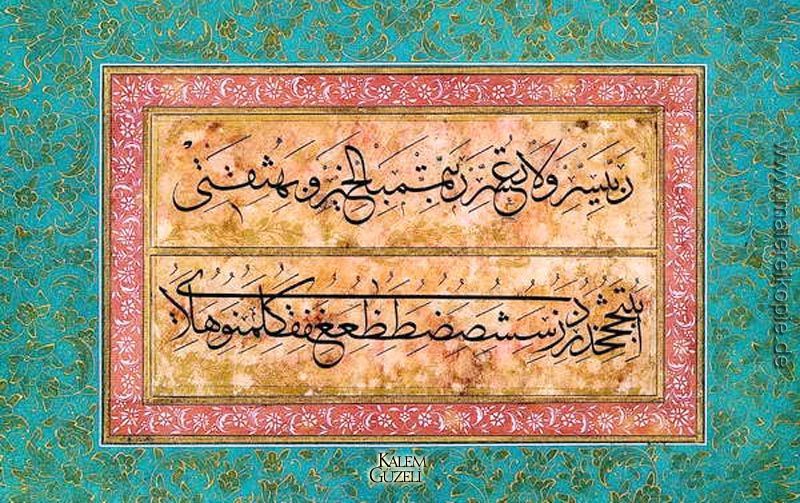 رب يسر ولا تعسر رب تمم بالخير وبه ثقتي
ا ب ت ث ج ح خ د ذ ر ز س ش ص ض ط ظ ع غ ف ق ك ل م ن و ه لا ي
www.malereikopie.de
KALEM
GÜZELİ